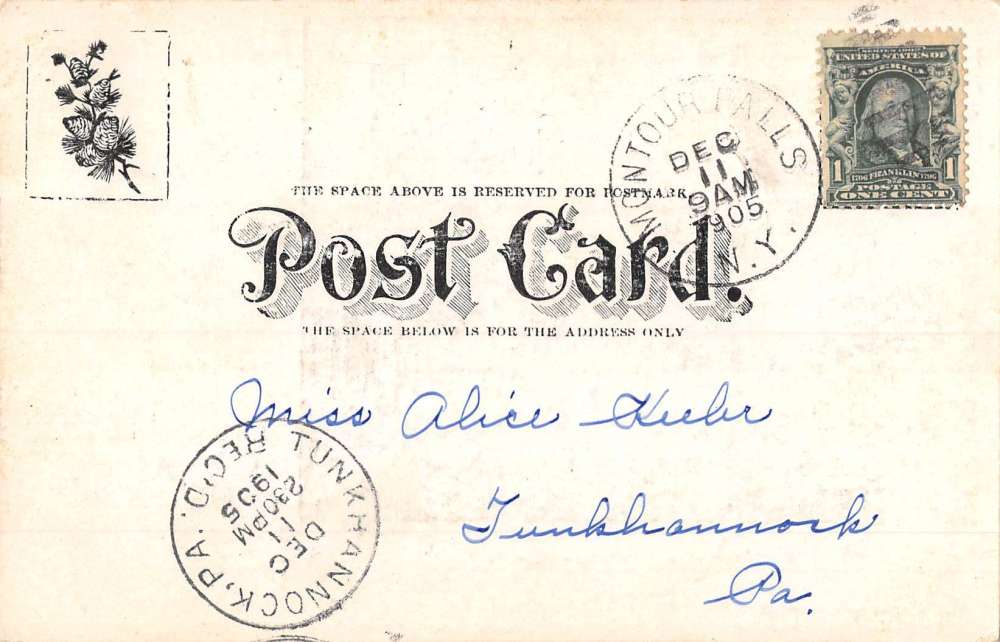 UNITED STATES OF
AMERICA
1706 FRANKLIN 1790
POSTAGE
1 ONE CENT 1
MONTOUR FALLS
DEC
11
9 AM
1905
N.Y.
THE SPACE ABOVE IS RESERVED FOR POSTMARK
Post Card.
THE SPACE BELOW IS FOR THE ADDRESS ONLY
Miss Alice Keeler
Tunkhannock
Pa.
TUNKHANNOCK, PA. REC'D.
DEC
11
230PM
1905